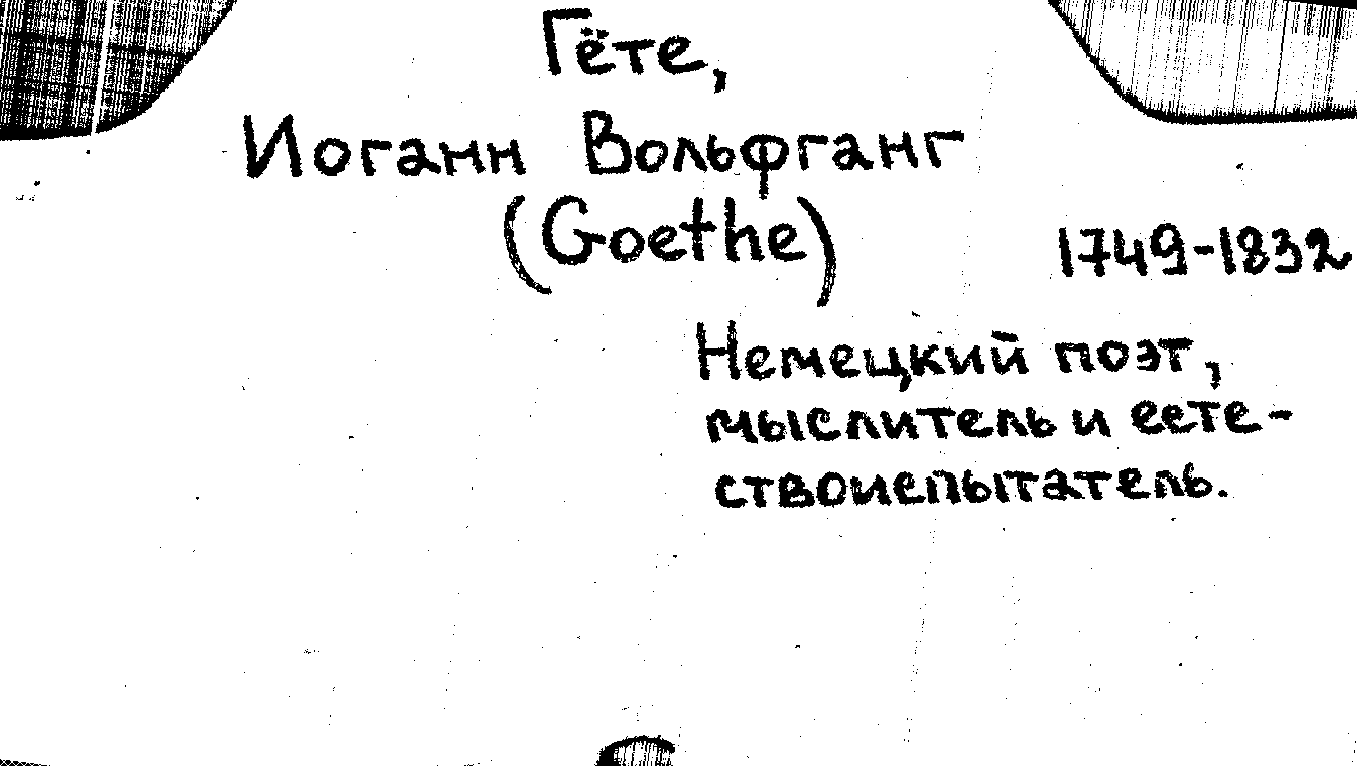 Гёте,
Иоганн Вольфганг
(Goethe)
1749-1832
Немецкий поэт,
мыслитель и есте-
ствоиспытатель.